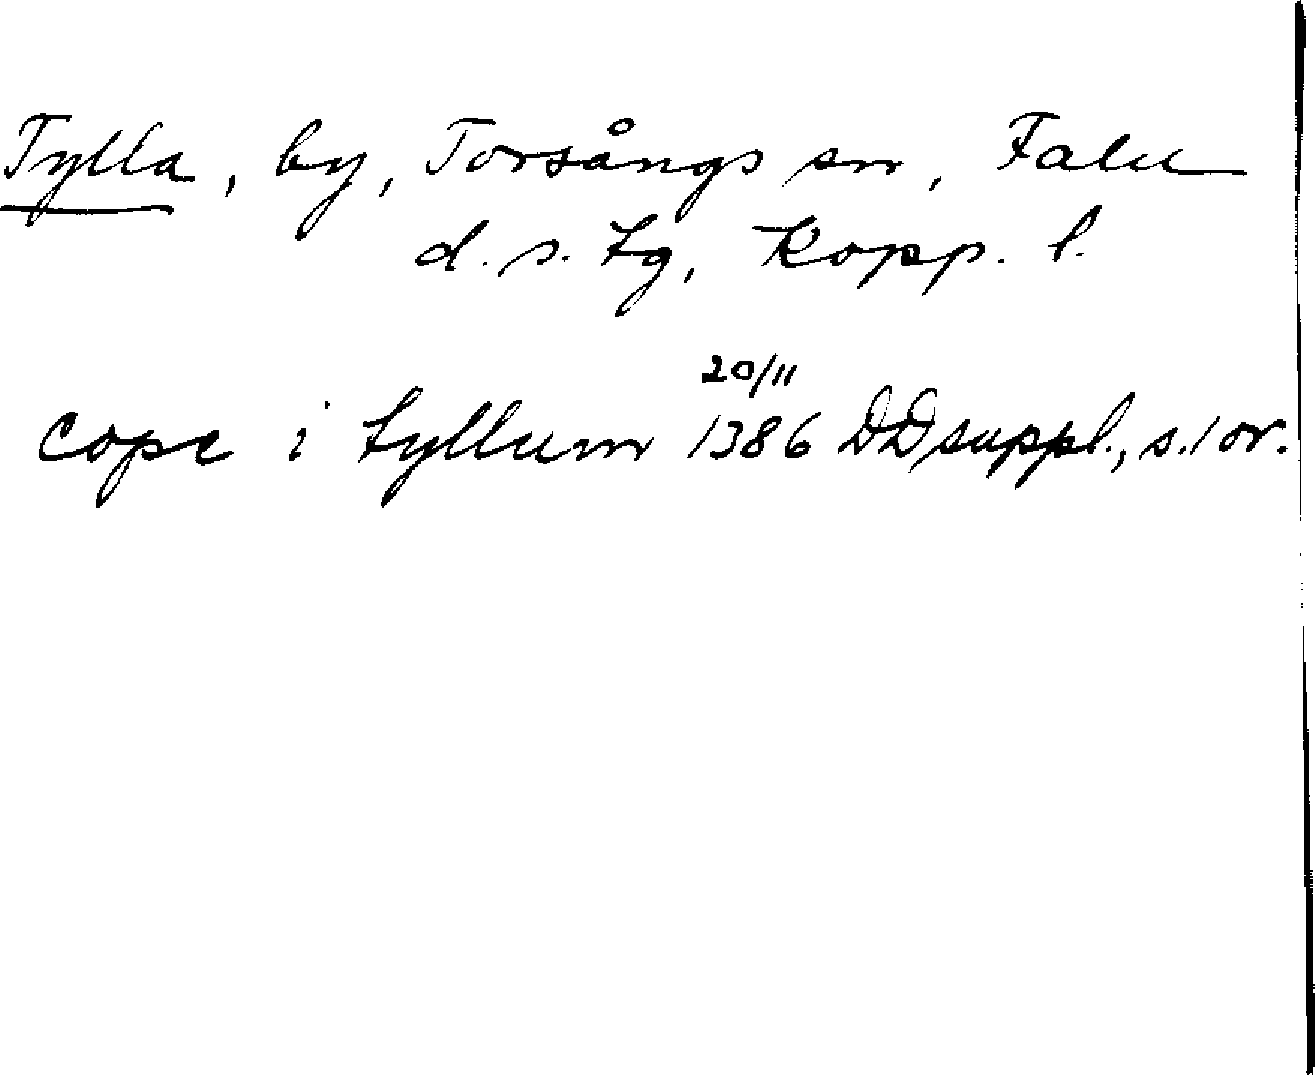 Tylla, by, Torsångs sn, Falu
d. s. tg, Kopp. l.
20/11
cope i tyllum 1386 DDsuppl., s.1 or.